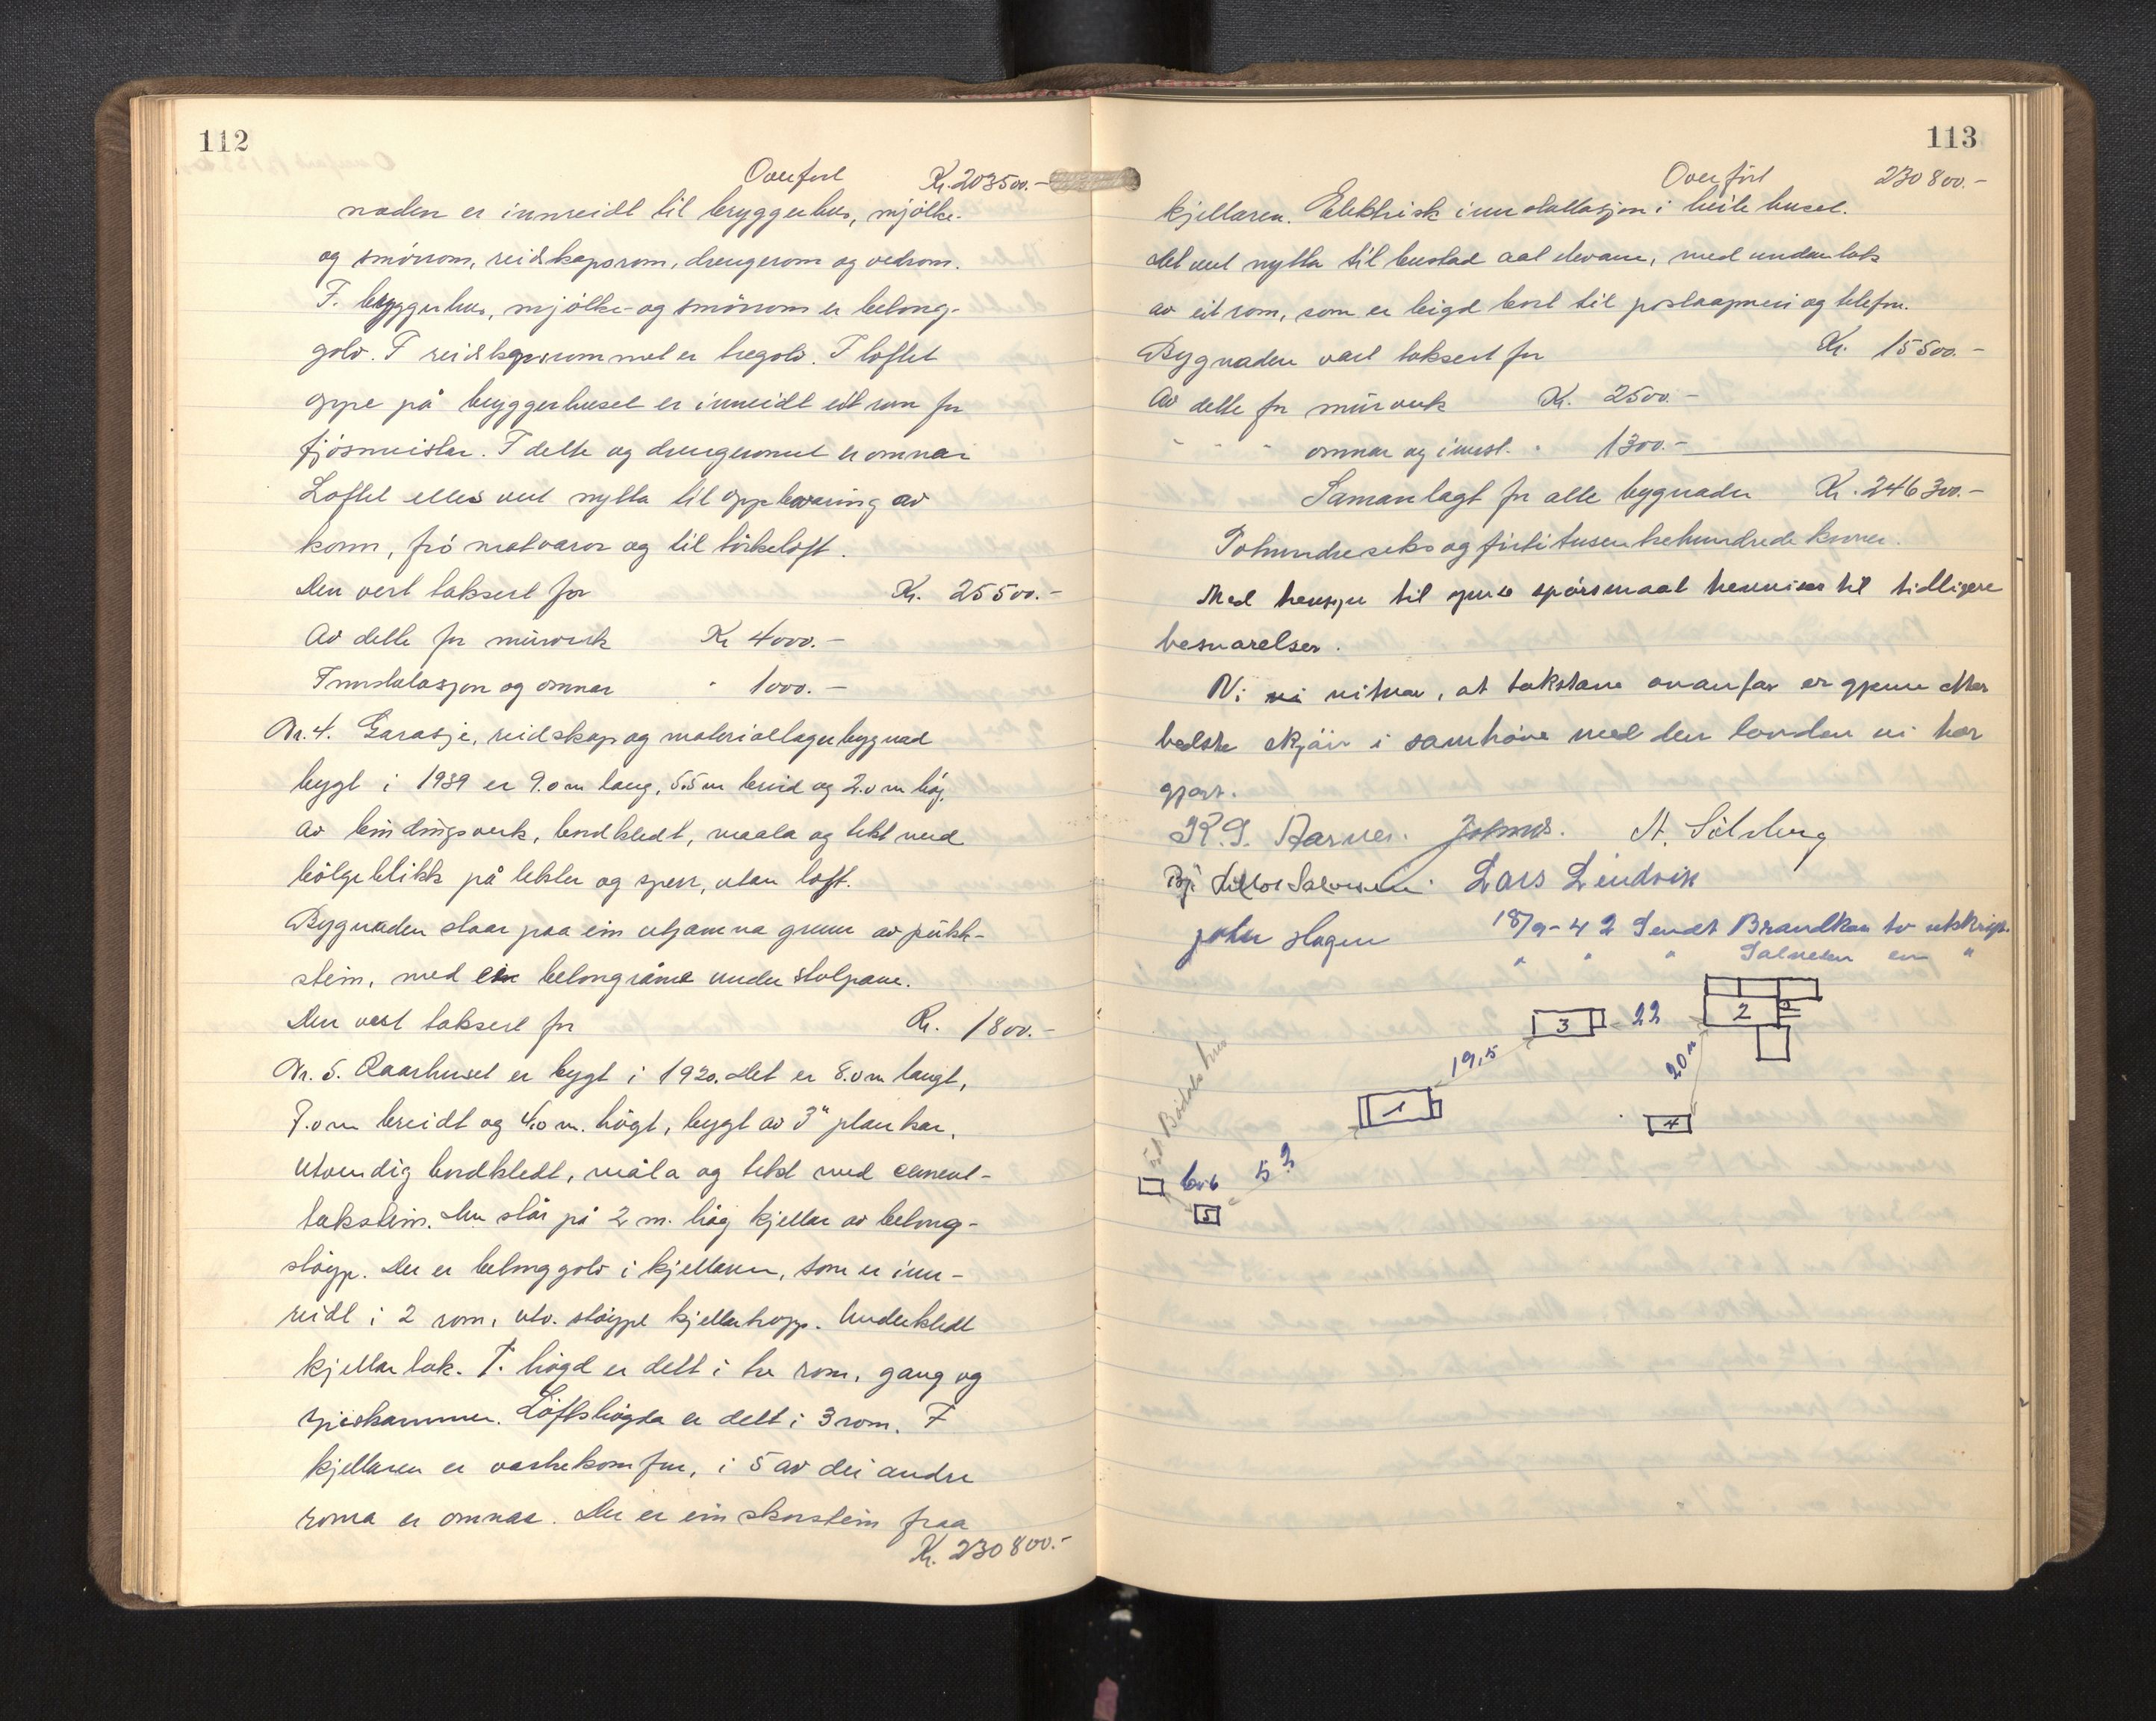 112
Overført Kr. 203500.-
naden er innreidt til bryggerhus, mjölke-
og smörrom, reidskapsrom, drengerom og vedrom.
I bryggerhus, mjölke- og smörrom er betong-
golv. I reidskapsrommet er tregolv. I loftet
oppe på bryggerhuset er innreidt eit rom for
fjösmeister. I dette og drengeromet er omnar
Loftet elles vert nytta til oppbevaring av
korn, frö matvaror og til törkeloft.
Den vert taksert for Kr. 25500.-
Av dette for mürverk Kr 4000.-
Innstalasjon og omnar " 1000.-
Nr. 4. Garasje, reidskap og materiallagerbygnad
bygt i 1939 er 9.0 m lang, 5.5 m breid og 2.0 m høg.
av bindingsverk, bordkledt, maala og tekt med
bölgeblikk på lekter og sperr, utan loft.
Bygnaden staar paa ein utjamna grunn av pükk-
stein, med ein betongråme under stolpane.
Den vert taksert for Kr. 1800.-
Nr. 5. Kaarhuset er bygt i 1920. Det er 8.0 m langt,
7.0 m breidt og 4.0 m. högt, bygt av 3" plankar,
utvendig bordkledt, måla og tekt med cement-
takstein. Den står på 2 m. høg kjellar av betong-
stöyp. Der er betonggolv i kjellaren, som er inn-
reidt i 2 rom, utv. støypt kjellartrapp. Underkledt
kjellartak. I. högd er delt i tre rom, gang og
spiskammer. Loftshögda er delt i 3 rom. I
kjellaren er vaskekomfyr, i 5 av dei andre
roma er omnar. Der er ein skorstein fraa
Kr. 230800.-
113
Overfört 230800.-
kjellaren. Elektrisk innstallasjon i heile huset.
Det vert nytta til bustad aat elevane, med undantak
av eit rom, som er leigd bort til postaapneri og telefon.
Bygnaden vart taksert for Kr. 15500.-
Av dette for mürverk Kr. 2500.-
" " " omnar og innst. " 1300.-
Samanlagt for alle bygnader Kr. 246300.-
Tohundreseksogförtitusentrehundrede kroner.
Med hensyn til öfvrige spörsmaal henvises til tidligere
besvarelser.
Vi vitnar, at takstane ovanfor er gjevne etter
bedste skjön i samhöve med den lovnden vi har
gjort.
K. G. Aarnes. A. Sölsberg
Lars Lindvik
John Hagen 18/9-42 Sendt Brandkas to utskrift.
" " " Salvesen en "
3 22 2
19,5 20 m
1
4
52
5